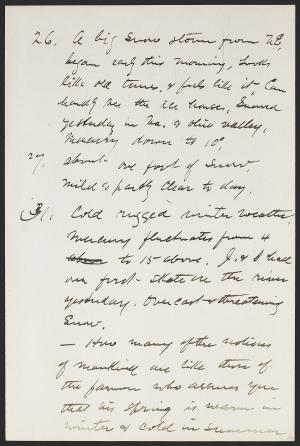 26. A big Snow storm from N.E,
began early this morning, Looks
like old times, & feels like it, Can
hardly see the ice house, Snowed
yesterday in Va. & Ohio valley,
Mercury down to 10°,
27 about one foot of Snow.
mild & partly clear to day.
31. Cold rugged winter weather.
Mercury fluctuates from 4
above to 15 above. J. & I had
our first skate on the river
yesterday. Overcast & threatening
Snow.
— How many of the notions
of mankind are like those of
the farmer who assures you
that his Spring is warm in
winter & cold in summer